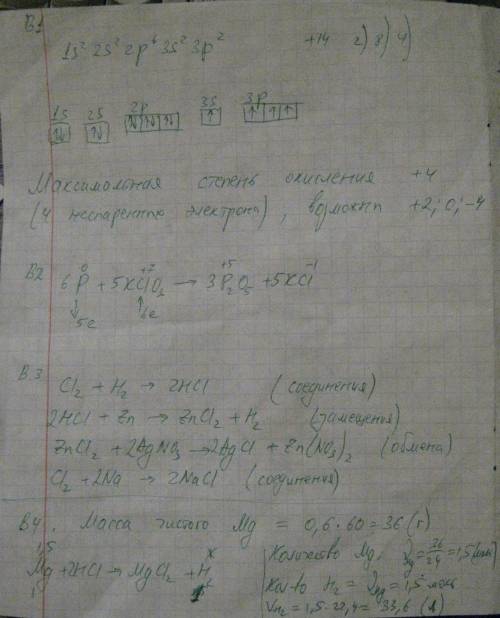 В1
1s² 2s² 2p⁶ 3s² 3p² +14 2) 8) 4)
1s 2s 2p 3s 3p
↑↓ ↑↓ ↑↓ ↑↓ ↑↓ ↑ ↑ ↑ ↑
Максимальная степень окисления +4
(4 неспаренных электрона), возможны +2; 0; -4
В2
0 +7 +5 -1
6P + 5KClO₃ → 3P₂O₅ + 5KCl
↓5e ↑6e
В.3
Cl₂ + H₂ → 2HCl (соединения)
2HCl + Zn → ZnCl₂ + H₂ (замещения)
ZnCl₂ + 2AgNO₃ → 2AgCl + Zn(NO₃)₂ (обмена)
Cl₂ + 2Na → 2NaCl (соединения)
В4. Масса чистого Mg = 0,6 · 60 = 36 (г)
1,5 x
Mg + 2HCl → MgCl₂ + H
1
Количество Mg: ν = 36/24 = 1,5 (моль)
Кол-во H₂ = νMg = 1,5 моль
VH₂ = 1,5 · 22,4 = 33,6 (л)